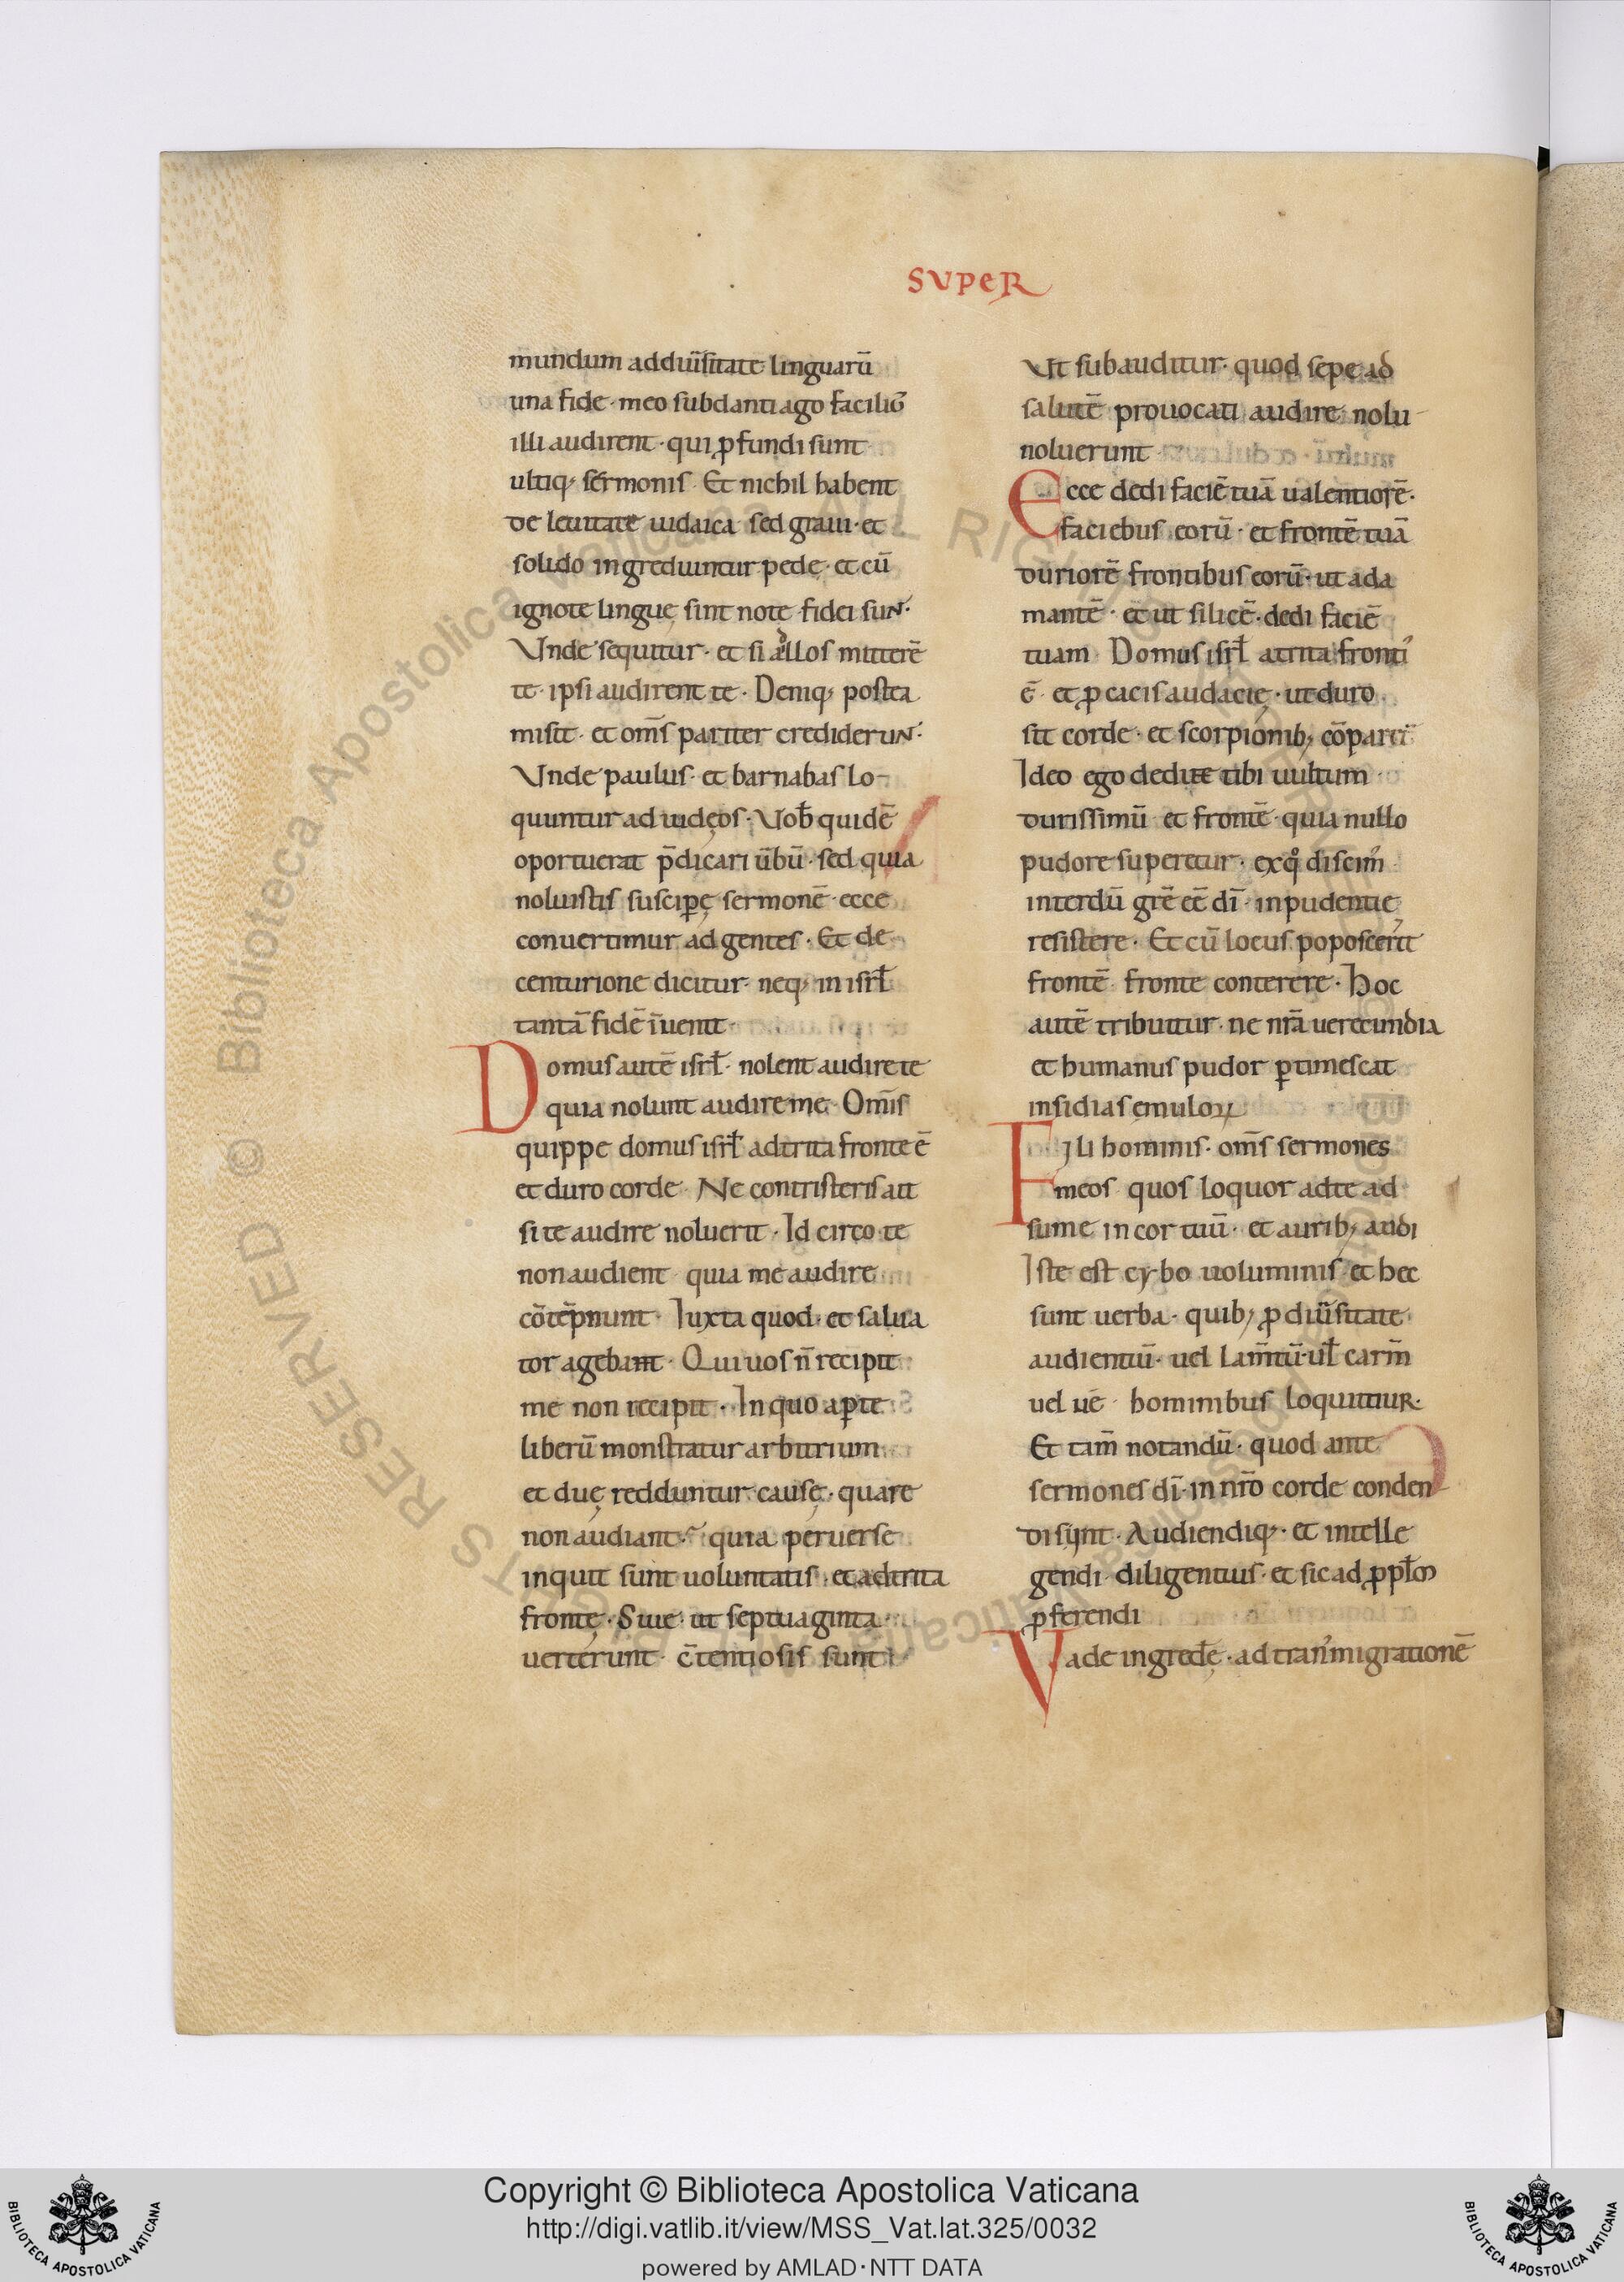 SUPER
mundum ad dui ̄sitate linguarū
una fide meo subdanti ago facili9̄
illi audirent · qui ꝓfundi sunt
ultiq; sermonis · Et nichil habent
de leuitate iudaica sed graui · et
solido ingrediuntur pede · et cū
ignote linguę sint note fidei suN·
Unde sequitur · et si ad illos mitterē
te · ipsi audirent te · Deniq; postea
misit · et om̄s pariter credideruN·
Unde paulus · et barnabas lo-
quuntur ad iudęos · Vob̄ quidē
oportuerat p̄dicari ūbū · sed quia
noluistis suscipꝑę sermonē · ecce
conuertimur ad gentes · Et de
centurione dicitur · neq; in isrł
tantā fidē īuenit
Domus autē isrł · nolent audire te
quia nolunt audire me · Om̄is
quippe domus isrł adtrita fronte ē
et duro corde · Ne contristeris ait
si te audire noluerit · Id circo te
non audient quia me audire
cōtēpnunt · Iuxta quod · et salua
tor agebant · Qui uos n̄ recipit
me non recipit · In quo aꝑte
liberū monstratur arbitrium
et duę redduntur causę · quare
non audiant · quia peruerse
inquit sunt uoluntatis · et adtrita
frontę · Siue · ut septuaginta
uerterunt · c̄tentiosis sunt
Vt subauditur · quod sepe ad
salutē prouocati audire nolu
noluerunt
Ecce dedi faciē tuā ualentiorē ·
faciebus eorū · et frontē tuā
duriorē frontibus eorū · ut ada
mantē · et ut silicē · dedi faciē
tuam Domus isrł atrita fronti᾿
ē · et ꝓcacis audacię · ut duro
sit corde · et scorpionib; cōparet᾿
Ideo ego dedi te tibi uultum
durissimū et frontē quia nullo
pudore superetur · ex qͦ discim᾿
interdū grē eē dī · inpudentie
resistere · Et cū locus poposcerit
frontē fronte conterere · Hoc
autē tribuitur · ne nr̄a uerecundia
et humanus pudor ꝑtimescat
insidias emuloꝝ
Fili hominis · om̄s sermones
meos quos loquor ad te ad
sume in cor tuū · et aurib; audi
Iste est cybo uoluminis et hec
sunt uerba · quib; ꝓ diuer̄sitate
audientiū · uel lam̄tū · ul̄ carm̄
uel uē hominibus loquituR·
Et tam̄ notandū · quod ante
sermones dī · in nr̄o corde conden
di sunt · Audiendiq; · et intelle
gendi diligentius · et sic ad ꝓpłm
ꝓferendi
Vade ingredeę · ad trans᾿migrationē
Copyright © Biblioteca Apostolica Vaticana
http://digi.vatlib.it/view/MSS_Vat.lat.325/0032
powered by AMLAD·NTT DATA
BIBLIOTECA APOSTOLICA VATICANA
BIBLIOTECA APOSTOLICA VATICANA